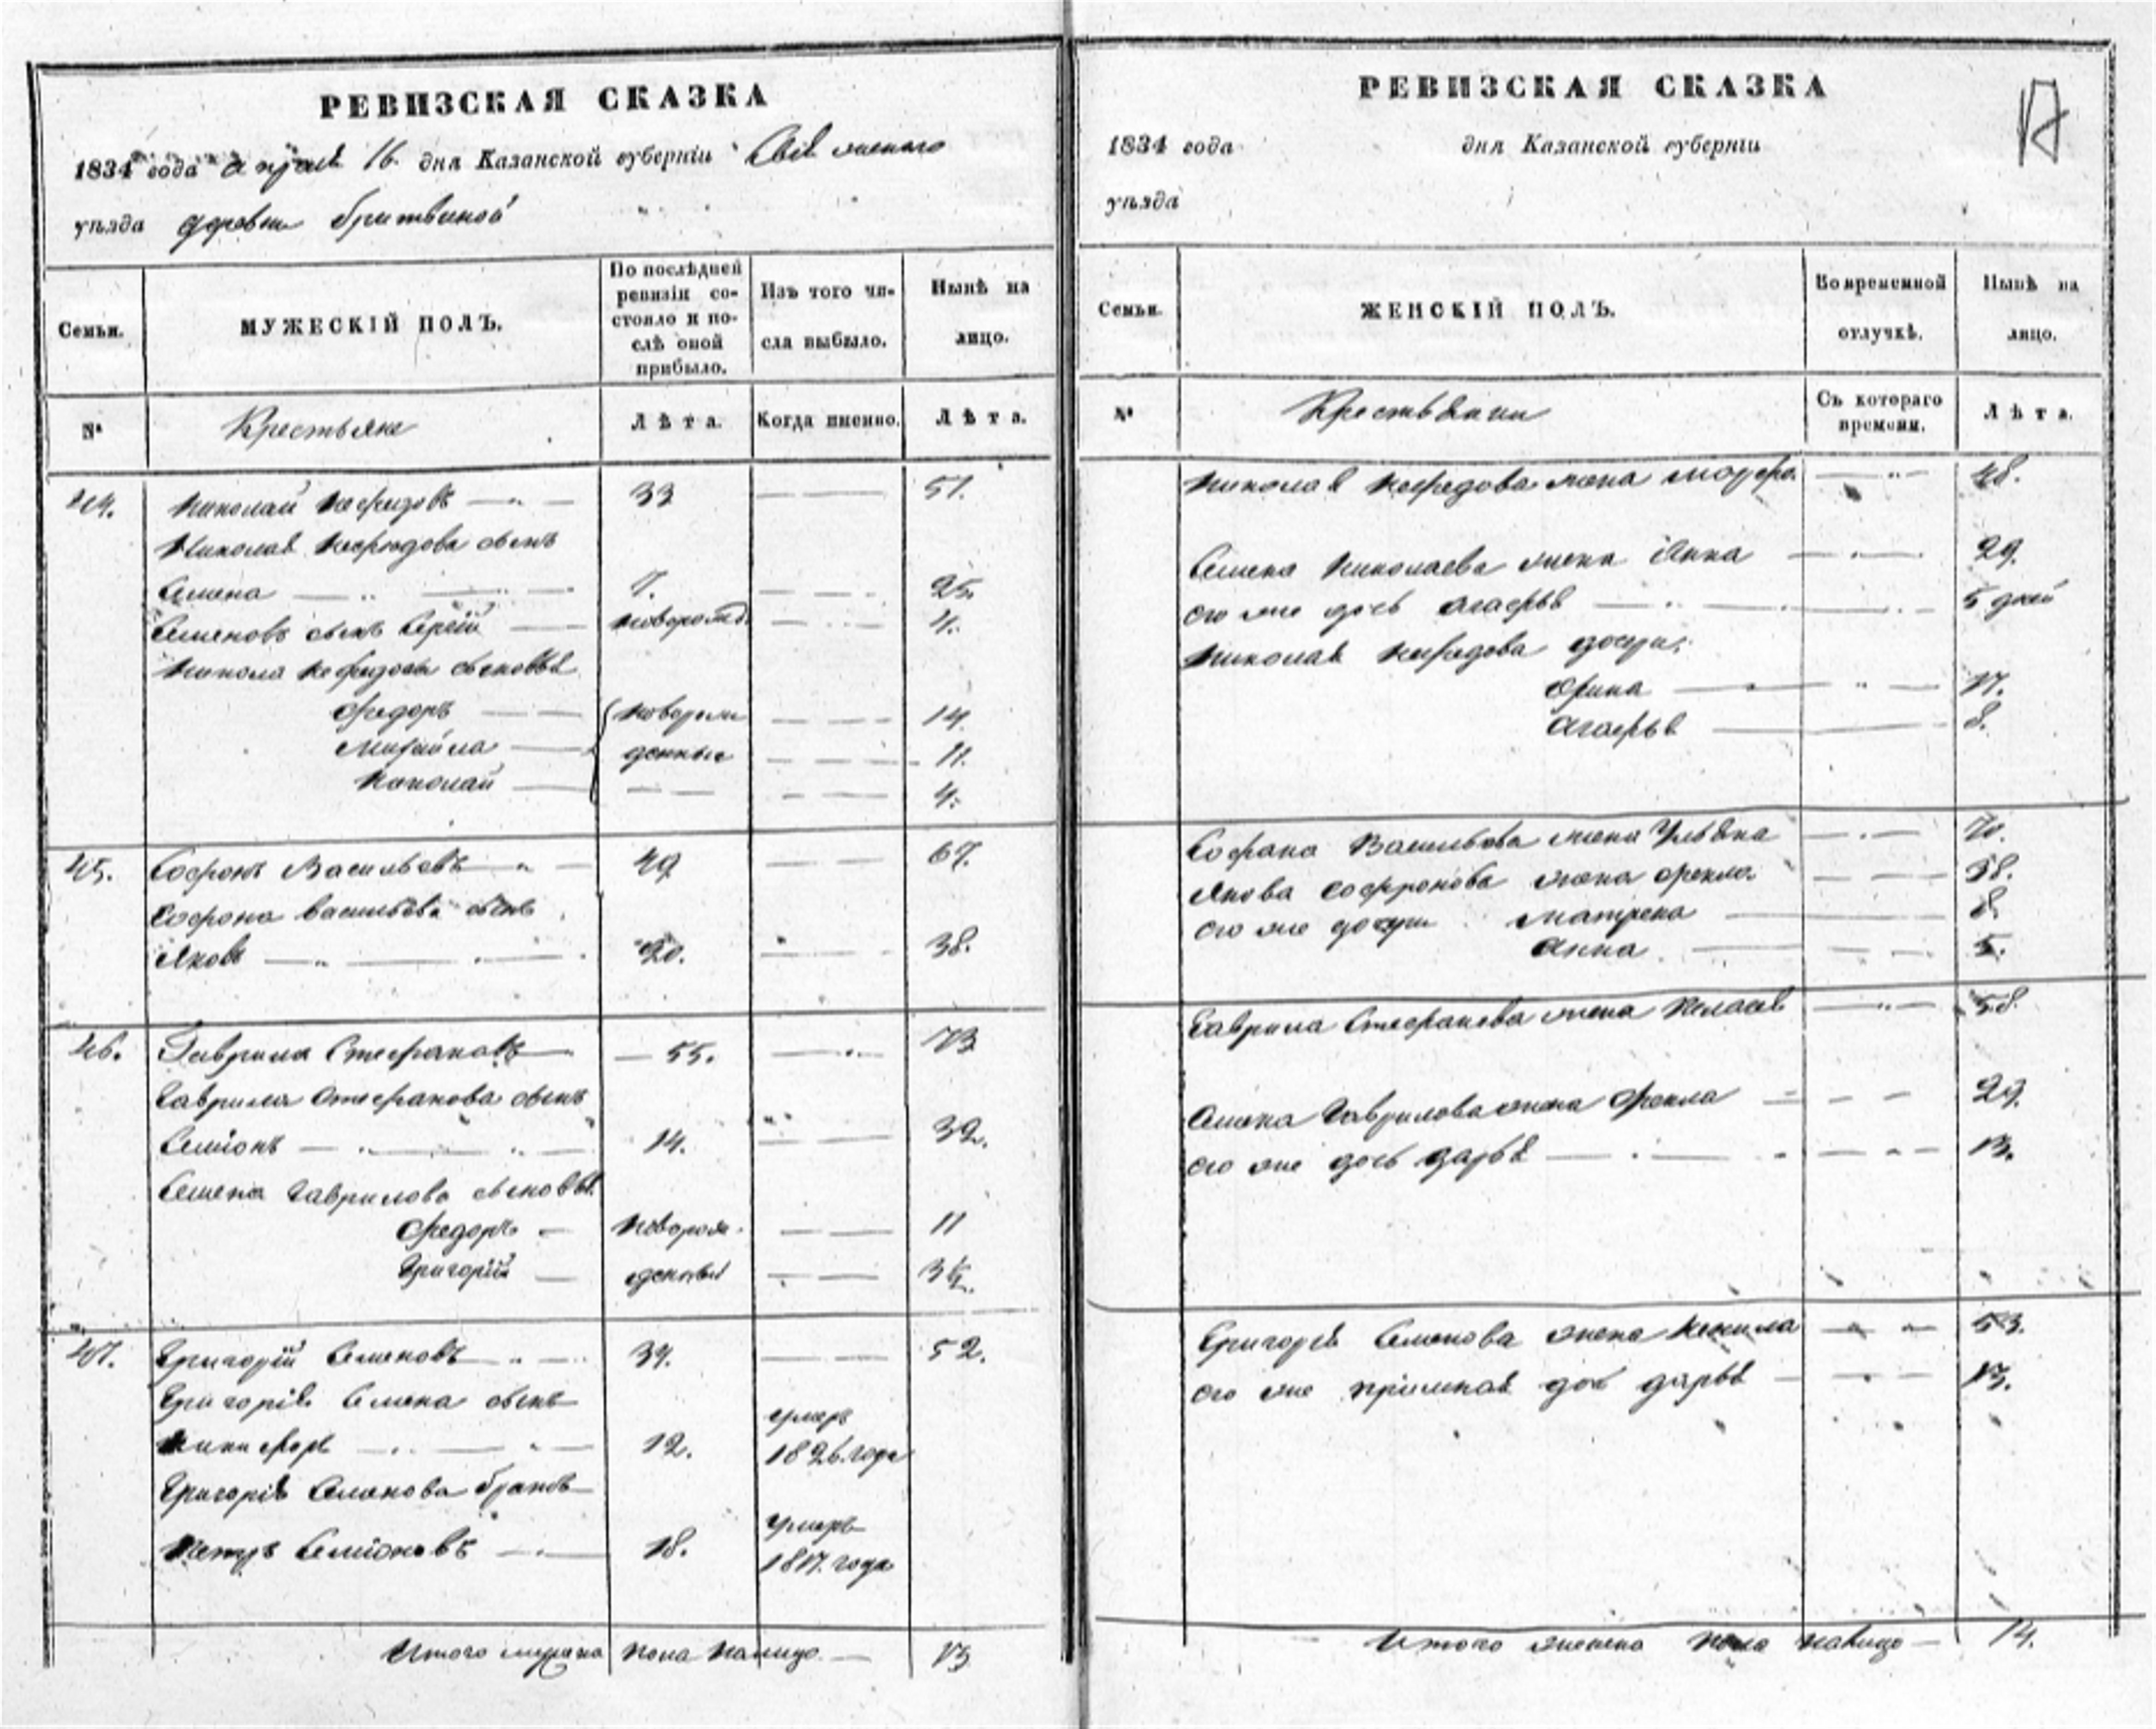 РЕВИЗСКАЯ СКАЗКА
1834 года апреля 16 дня Казанской губерніи Свіяжского
уѣзда деревни бритвиной
Семьи.
МУЖЕСКІЙ ПОЛЪ.
По послѣдней ревизіи состояло и послѣ оной прибыло.
Изъ того числа выбыло.
Нынѣ на лицо.
№
Крестьяне
Лѣта.
Когда именно.
Лѣта.
44. Николай Нефедовъ 33 51.
Николая Нефедова сынъ
Семенъ 7. 25.
Семеновъ сынъ Сергій новорожд. 4.
Николая Нефедова сыновья
Федоръ новорож 14.
Михайла денные 11.
Николай 4.
45. Софронъ Васильевъ 49 67.
Софрона Васильева сынъ
Яковъ 20. 38.
46. Гаврила Стефановъ 55. 73
Гаврила Стефанова сынъ
Семіонъ 14. 32.
Семена Гаврилова сыновья
Федоръ новорож 11
Григорій денный 3½.
47. Григорій Семеновъ 34. 52.
Григорія Семена сынъ
Никифоръ 12. умеръ 1826 года
Григорія Семенова братъ
Петръ Семіоновъ 18. умеръ 1817 года
Итого мужска пола налицо 13
РЕВИЗСКАЯ СКАЗКА
1834 года дня Казанской губерніи
уѣзда
Семьи.
ЖЕНСКІЙ ПОЛЪ.
Во временной отлучкѣ.
Нынѣ на лицо.
№
Крестьянки
Съ котораго времени.
Лѣта.
Николая Нефедова жена 48.
Семена Николаева жена Анна 29.
его же дочь Агафья 5 дней
Николая Нефедова дочери:
Орина 17.
Агафья 8.
Софрона Васильева жена Ульяна 70.
Якова Софронова жена Фекла 38.
его же дочери Матрена 8.
Анна 5.
Гаврила Стефанова жена Пелагея 58.
Семена Гаврилова жена Фекла 29.
его же дочь Дарья 13.
Григорія Семенова жена 53.
его же пріемная дочь Дарья 13.
Итого женска пола налицо 14.